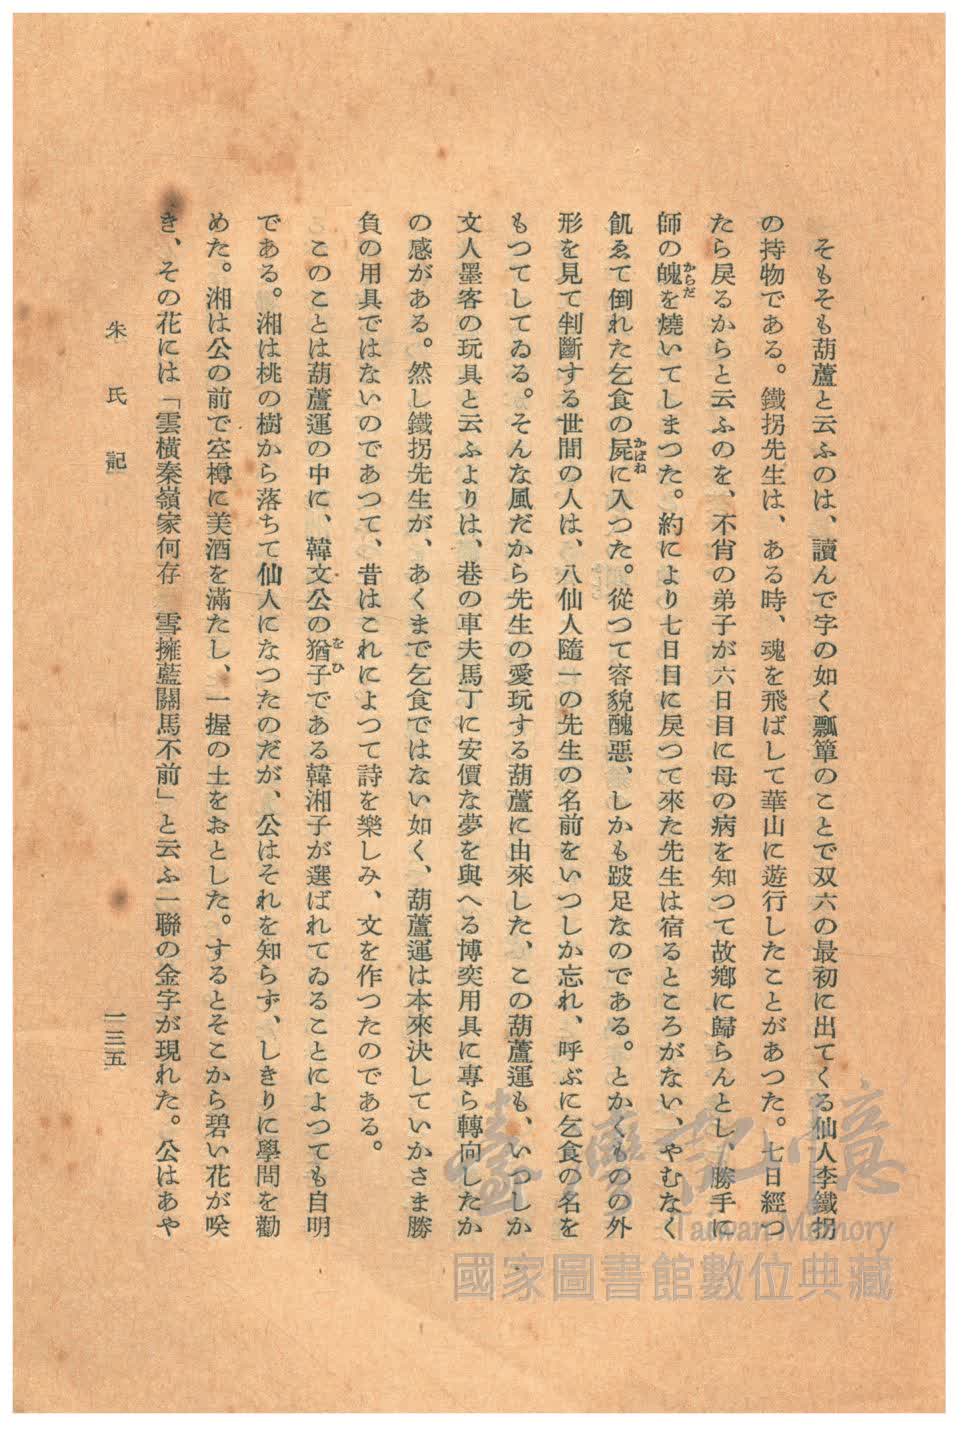 そもそも葫蘆と云ふのは、讀んで字の如く瓢簞のことで双六の最初に出てくる仙人李鐵拐
の持物である。鐵拐先生は、ある時、魂を飛ばして華山に遊行したことがあつた。七日經つ
たら戻るからと云ふのを、不肖の弟子が六日目に母の病を知つて故鄕に歸らんとし、勝手に
師の魄からだを燒いてしまつた。約により七日目に戻つて來た先生は宿るところがない、やむなく
飢ゑて倒れた乞食の屍かばねに入つた。從つて容貌醜惡、しかも跛足なのである。とかくものの外
形を見て判斷する世間の人は、八仙人隨一の先生の名前をいつしか忘れ、呼ぶに乞食の名を
もつてしてゐる。そんな風だから先生の愛玩する葫蘆に由來した、この葫蘆運も、いつしか
文人墨客の玩具と云ふよりは、巷の車夫馬丁に安價な夢を與へる博奕用具に專ら轉向したか
の感がある。然し鐵拐先生が、あくまで乞食ではない如く、葫蘆運は本來決していかさま勝
負の用具ではないのであつて、昔はこれによつて詩を樂しみ、文を作つたのである。
このことは葫蘆運の中に、韓文公の猶子をひである韓湘子が選ばれてゐることによつても自明
である。湘は桃の樹から落ちて仙人になつたのだが、公はそれを知らず、しきりに學問を勸
めた。湘は公の前で空樽に美酒を滿たし、一握の土をおとした。するとそこから碧い花が咲
き、その花には「雲橫秦嶺家何存　雪擁藍關馬不前」と云ふ一聯の金字が現れた。公はあや
朱氏記
一三五
臺灣記憶
Taiwan Memory
國家圖書館數位典藏